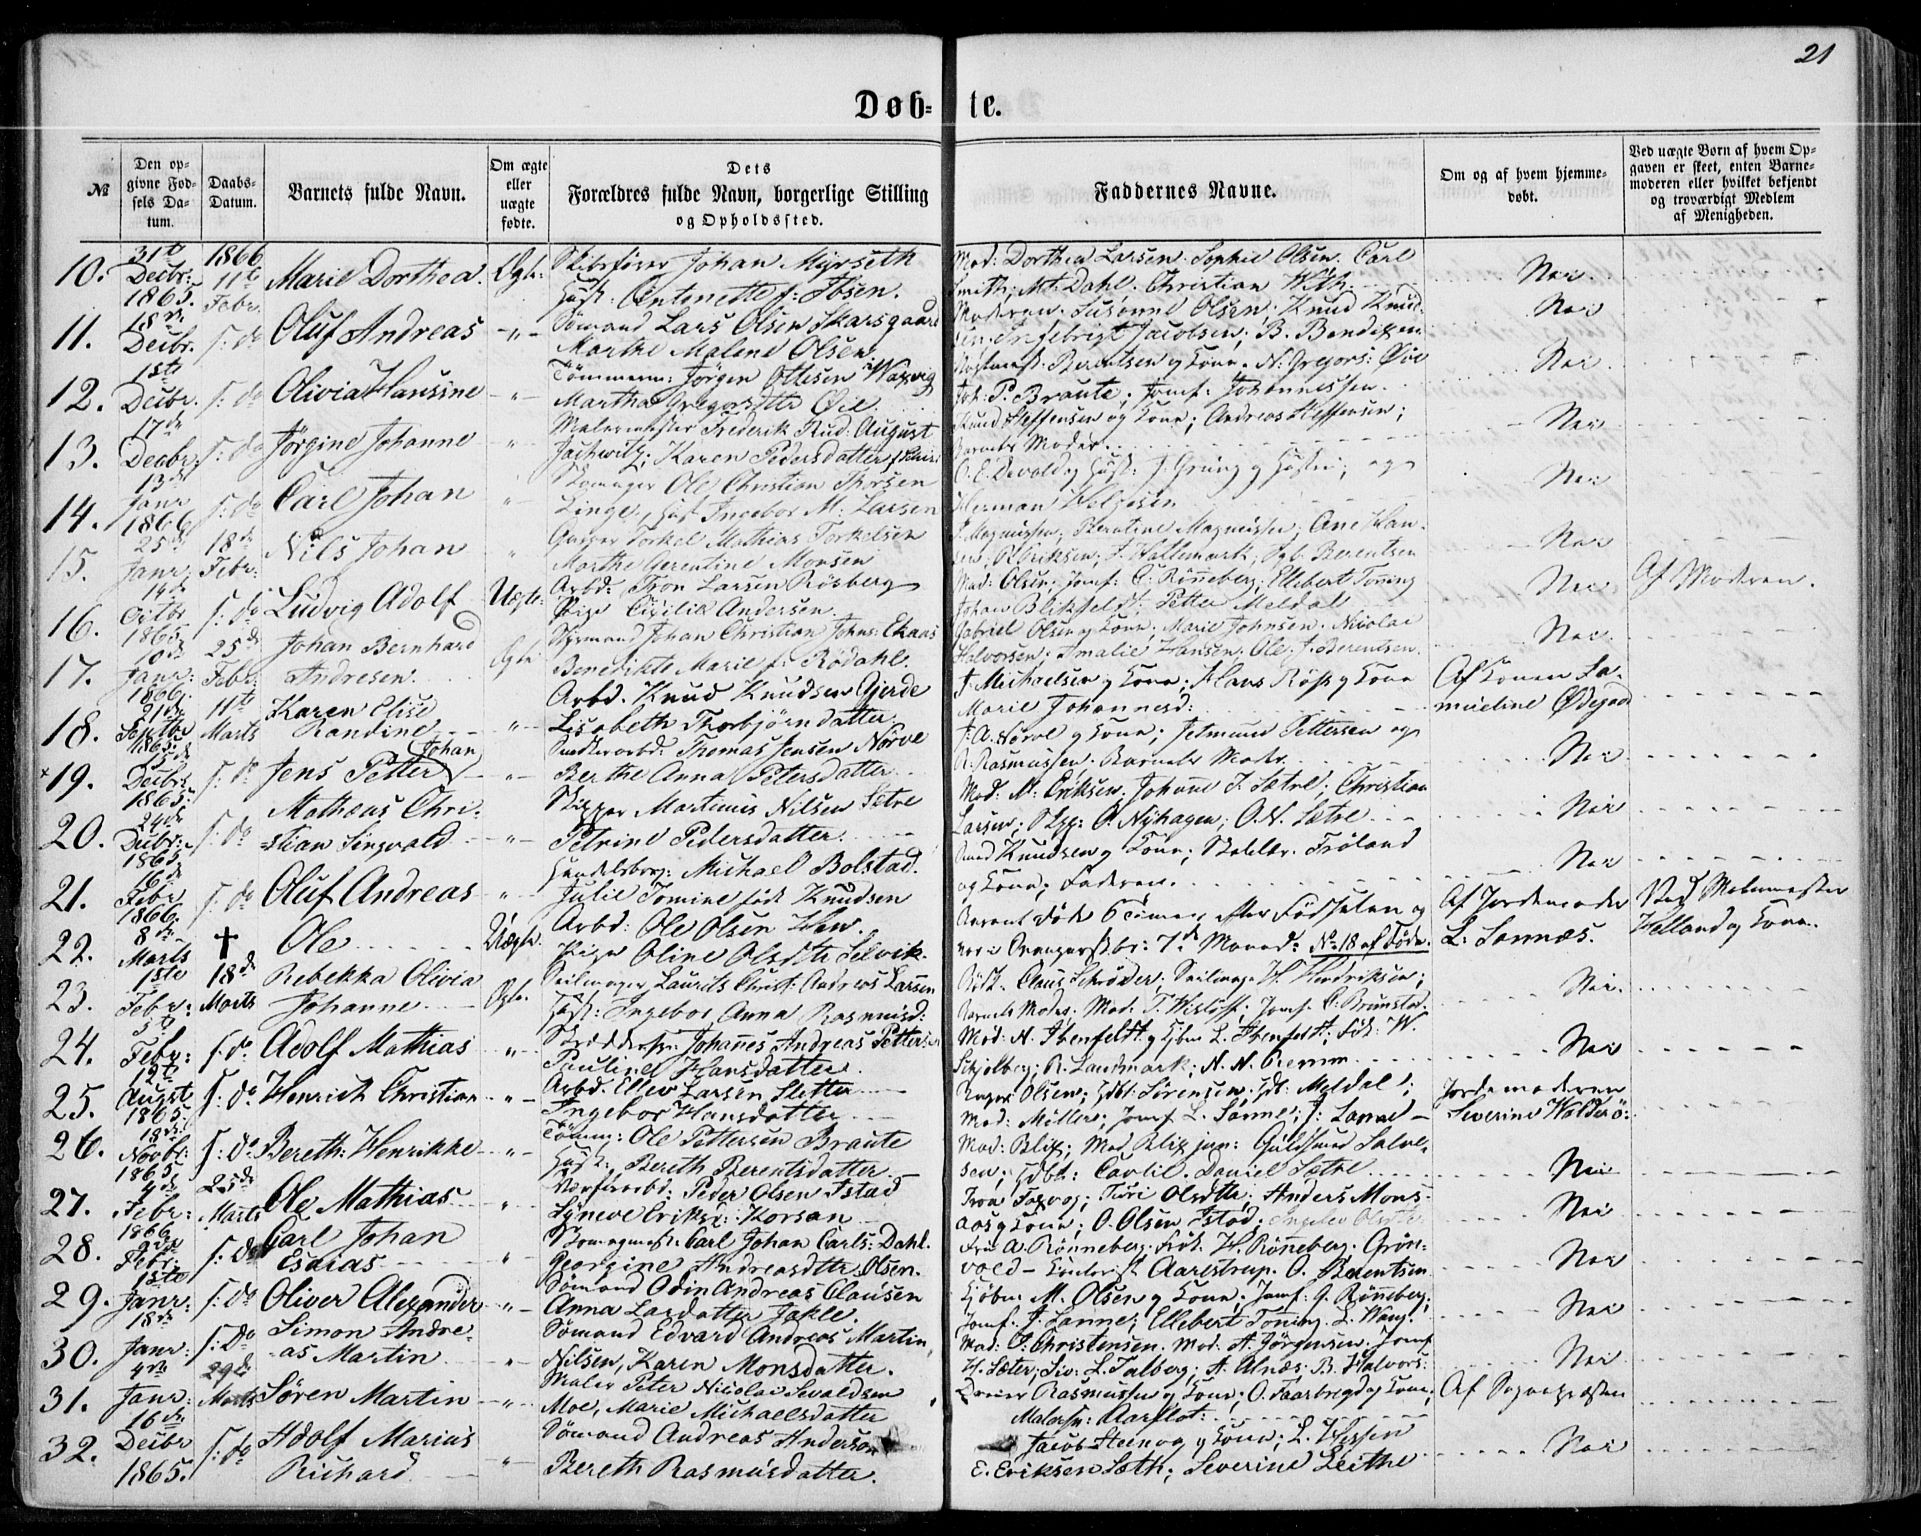 21
Døb- te.
№
Den opgivne Fødsels Datum.
Daabs-Datum.
Barnets fulde Navn.
Om ægte eller uægte fødte.
Dets Forældres fulde Navn, borgerlige Stilling og Opholdssted.
Faddernes Navne.
Om og af hvem hjemmedøbt.
Ved uægte Børn af hvem Opgaven er skeet, enten Barnemoderen eller hvilket bekjendt og troværdigt Medlem af Menigheden.
10. 31te Decbr: 1865. 1866 11te Febr. Marie Dorthea. Ægte. Skibsfører Johan Myrseth
Hust: Antonette f: Ibsen.
Mad: Dorthea Larsen. Sophie Olsen. Carl
Smith; Mt. Dahl. Christian With. Nei
11. 18de Decbr. s: do Oluf Andreas -"- Sømand Lars Olsen Skarsgaard
Marthe Malene Olsen
Moderen. Susanne Olsen. Knud Knud-
sen. Jacobsen; B. Bendixen Nei
12. 1ste Decbr. s: do Olivia Hansine -"- Tømmerm: Jørgen Ottesen
Martha Øie
Berentsen og Kone. N. Gregors: Øie
Joh: P. Braute; Jomf: Johannessen. Nei
13. 17de Decbr. s: do Jørgine Johanne " Malermester Frederik Rud: August
Karen Pedersdatter
Knud Steffensen og Kone; Andreas Steffensen;
Barnets Moder. Nei
14. 13de Janr 1866 s: do Carl Johan " Skomager Ole Christian Thorsen
Linge, Hust Ingebor M: Larsen
O. E. Devold og Hust: J. Grung og Hustru; og
Herman Helgesen Nei
15. 25de Janr. 18de Febr: Nils Johan " Torkel Mathias Torkilsen
Marthe Gerentine Monsen
Magnussen; Ane Han-
sen; Eriksen; Berentsen Nei
16. 14de Octbr 1865 s: do Ludvig Adolf Uægte: Arbd: Larsen Røsberg
Pige Andersen.
Mad: Olsen; Jomf: C: Rönneberg; Ellebert Tonning
Johan Blikfeldt. Petter Meldal Nei Af Moderen.
17. 10de Janr: 1866. 25de Febr: Johan Bernhard
Andresen. Ægte Styrmand Johan Christian Johns: Ekaas
Benedikte Marie f: Rödahl.
Gabriel Olsen og Kone; Marie Johnsen. Nicolai
Halvorsen; Amalie Hansen. Ole J. Berentsen. Nei.
18. 21de Septbr 1865. 11te Marts Karen Elise
Randine -"- Arbd. Knud Knudsen Gjerde
Lisabeth Thorbjörnsdatter.
J. Michaelsen og Kone; Hans og Kone
Marie Johannesd: Af Konen Ja-
mueline Ødegaard
19. 15de Decbr: 1865. s: do Jens Petter Johan -"- Thomas Jensen Nörve
Berthe Anna Petersdatter
J. A. Nörve og Kone; Jetmund Pettersen og
R. Rasmussen. Barnets Moder. Nei
20. 24de Decbr: 1865 s: do Matheas Chri-
stian Singvald -"- Skipper Martinus Nilsen Sætre
Petrine Pedersdatter.
Mad: M: Eriksen; Johanne J: Sætre; Christian
Larsen; Skpp: O. Nyhagen; O. N. Sætre. Nei
21. 16de Febr 1866. s: do Oluf Andreas " Handelsborg: Michael Bolstad.
Julie Tomine født Knudsen
Knudsen og Kone; Fröland
og Kone; Faderen. Nei
22. 8de Marts † Ole Uægte. Arbd: Ole Olsen
Pige Oline Olsdtr Selvik.
Barnet døde 6 Timer efter Födselen og
7de Maaned: No 18 af Døde. Af Jordemoder
L. Sannæs. Ved
Helland og Kone.
23. 1ste Febr: 18de Marts Rebekka Olivia
Johanne Ægte. Seilmager Laurits Christ: Andreas Larsen
Hust: Ingebor Anna Rasmusd:
Claus Schröder; Seilmager H. Hendriksen;
Barnets Moder; Mad. T. Jomf. C. Brunstad. Nei.
24. 5te Febr: s: do Adolf Mathias " Johannes Andreas Petters:
Pauline Hansdatter.
Mad: N. Ibenfeldt og L. Ibenfeldt; Frk: W.
Schjölberg; R. Landmark; N. N. Nei
25. 12te August 1865. s: do Henrich Christian -"- Arbd. Larsen Slettn
Ingebor Hansdatter
Olsen; Sørensen; Meldal;
Mad: Møller; Jomf L. Sannes; J: Sannes Jordemoderen
Severine Walderö.
26. 18de Novbr. 1865 s: do Bereth: Henrikke -"- Tömm: Ole Pettersen Braute
Hust: Bereth Berentsdatter
Mad: Blix; Mad. Blix jun: Guldsmed Salve-
sen; Daniel Sætre. Nei
27. 4de Febr: 1866. 25de Marts Ole Mathias " Peder Olsen Istad
Synneve Eriksd: Korsan
Turi Olsdtr; Anders Mons-
aas og Kone; O. Olsen Istad; Nei
28. 2den Febr: s: do Carl Johan
Esaias " Carl Johan Carls: Dahl.
Georgine Andreasdtr Olsen.
Fru A. Rönneberg. Frök. H. Rönneberg. Grön-
vold - Aarestrup. O. Berentsen Nei
29. 1ste Janr: s: do Oliver Alexander -"- Sømand Odin Andreas Clausen
Anna Larsdatter Jahle.
Kjöbm. M. Olsen og Kone; Jomf: G. Rönneberg;
Jomf. J. Sanne; Ellebert Tonning. L. Wang. Nei
30. 18de Janr: s: do Simon Andre-
as Martin " Sømand Edvard Andreas Martin
Nilsen, Karen Monsdatter.
Mad: O. Christensen. Mad: A. Jörgensen; Jomf
H. Sæter; L. Talberg; A. Ulnæs; B. Halvors: Nei
31. 4de Janr: 29de Marts Søren Martin -"- Maler Peter Nicolai Sevaldsen
Moe, Marie Michaelsdatter
Dreier Rasmussen og Kone; O. og Kone;
Malersv: Aarflot. Af Sognepræsten
32. 16de Decbr 1865. s: do Adolf Marius
Richard -"- Sømand Andreas Anderson
Bereth Rasmusdatter.
Jacob og Kone; L.
E. Eriksen Sæth; Severine Leithe Nei